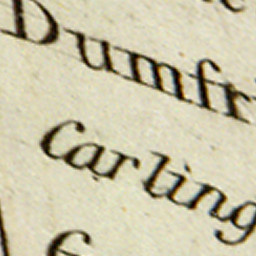 Dumfr
carling